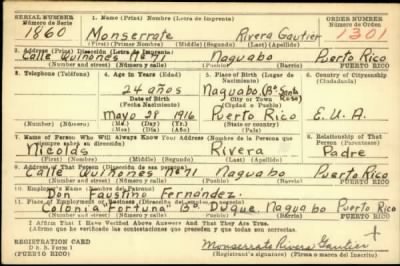 SERIAL NUMBER 1. Name (Print) Nombre (Letra de Imprenta) ORDER NUMBER
Número de Serie Número de Orden
1860 Monserrate Rivera Gautier 1301
(First) (Primer Nombre) (Middle) (Segundo) (Last) (Apellido)
2. Address (Print) Dirección (Letra de Imprenta)
Calle Quiñones Nº 71 Naguabo Puerto Rico
(Number and street) (Número y calle) (Barrio) PUERTO RICO
3. Telephone (Teléfono) 4. Age in Years (Edad) 5. Place of Birth (Lugar de Nacimiento) 6. Country of Citizenship (Ciudadanía)
24 años Naguabo (Bº Santa Rosa)
Date of Birth City or Town
(Fecha Nacimiento) (Ciudad o Pueblo)
Mayo 28 1916 Puerto Rico E.U.A.
(Number) (Número) (Mo.) (Day) (Yr.) (State or country)
7. Name of Person Who Will Always Know Your Address (Nombre de la Persona que siempre sabrá su dirección) 8. Relationship of That Person (Parentesco)
Nicolás Rivera Padre
(First) (Nombre) (Middle) (Segundo) (Last) (Apellido)
9. Address of That Person (Dirección de esa persona)
Calle Quiñones Nº 71 Naguabo Puerto Rico
(Number and street) (Número y calle) (Barrio) PUERTO RICO
10. Employer's Name (Nombre del Patrono)
Don Faustino Fernández.
11. Place of Employment or Business (Dirección del empleo o negocio)
Colonia "Fortuna" Bº Duque Naguabo Puerto Rico
(Number and street) (Número y calle) (Barrio) PUERTO RICO
I Affirm That I Have Verified Above Answers And That They Are True.
(Afirmo que he verificado las contestaciones que preceden y que todas son ciertas)
REGISTRATION CARD
D. S. S. Form 1
(PUERTO RICO)
Monserrate Rivera Gautier
(Registrant's Signature) (Firma del Inscrito)